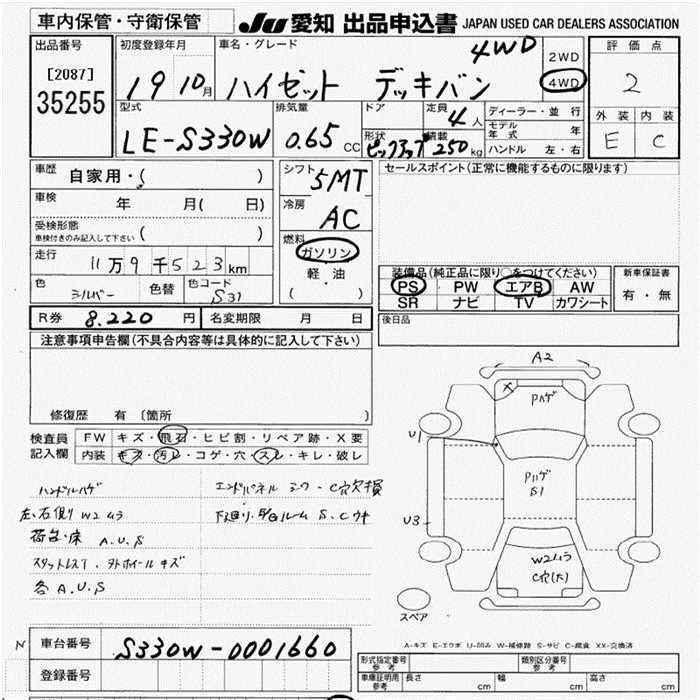 車内保管・守衛保管
JU 愛知 出品申込書 JAPAN USED CAR DEALERS ASSOCIATION
出品番号
[2087]
35255
初度登録年月
19 10月
車名・グレード
ハイゼット デッキバン 4WD
2WD
4WD
評価点
2
外装 内装
E C
型式
LE-S330W
排気量
0.65 CC
ドア
形状
ピックアップ
定員
4人
積載
250kg
ディーラー・並行
モデル年式 年
ハンドル 左・右
車歴 自家用・( )
車検 年 月( 日)
受検形態
車検付きのみ記入して下さい ( )
走行 11万9千523km
色 シルバー 色替 色コード S31
シフト 5MT
冷房 AC
燃料
ガソリン
軽・油
( )
セールスポイント(正常に機能するものに限ります)
装備品(純正品に限り○をつけてください)
PS PW エアB AW
SR ナビ TV カワシート
新車保証書
有・無
R券 8.220円 名変期限 月 日
後日品
注意事項申告欄(不具合内容等は具体的に記入して下さい)
修復歴 有 〔箇所 〕
検査員記入欄
FW キズ・飛石・ヒビ割・リペア跡・X要
内装 キズ・汚レ・コゲ・穴・スレ・キレ・破レ
ハンドルハゲ
左、右側り W2ムラ
荷台床 A.U.S
スタットレスT.外ホイールキズ
各 A.U.S
エンドパネル シワ・C穴欠損
下廻り.Eルーム S.Cウキ
A2
X
Pハゲ
U1
Pハゲ
S1
U3
W2ムラ
C穴(大)
スペア
A-キズ E-エクボ U-凹み W-補修跡 S-サビ C-腐食 XX-交換済
N
車台番号 S330W-0001660
登録番号
型式指定番号
参考
類別区分番号
参考
車庫証明用
参考
長さ cm 幅 cm 高さ cm